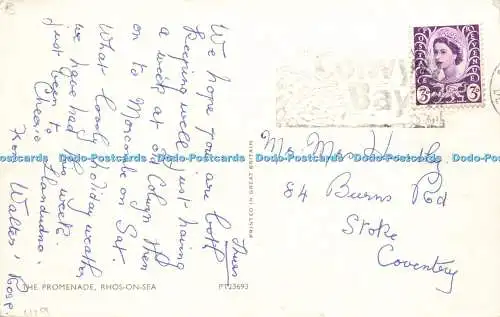 Thurs
We hope you are both
keeping well. Just having
a week at old Colwyn then
on to Morcambe on Sat.
What lovely holiday weather
we have had this week.
just been to Llandudno.
Cheerio
from Walter & Rose.
THE PROMENADE, RHOS-ON-SEA
PT23693
PRINTED IN GREAT BRITAIN
Colwyn
Bay
3D
Mr. Mrs. Huntly
84 Burns Rd
Stoke
Coventry
Postcards Postcards Postcards Postcards Postcards Postcards Postcards Postcards